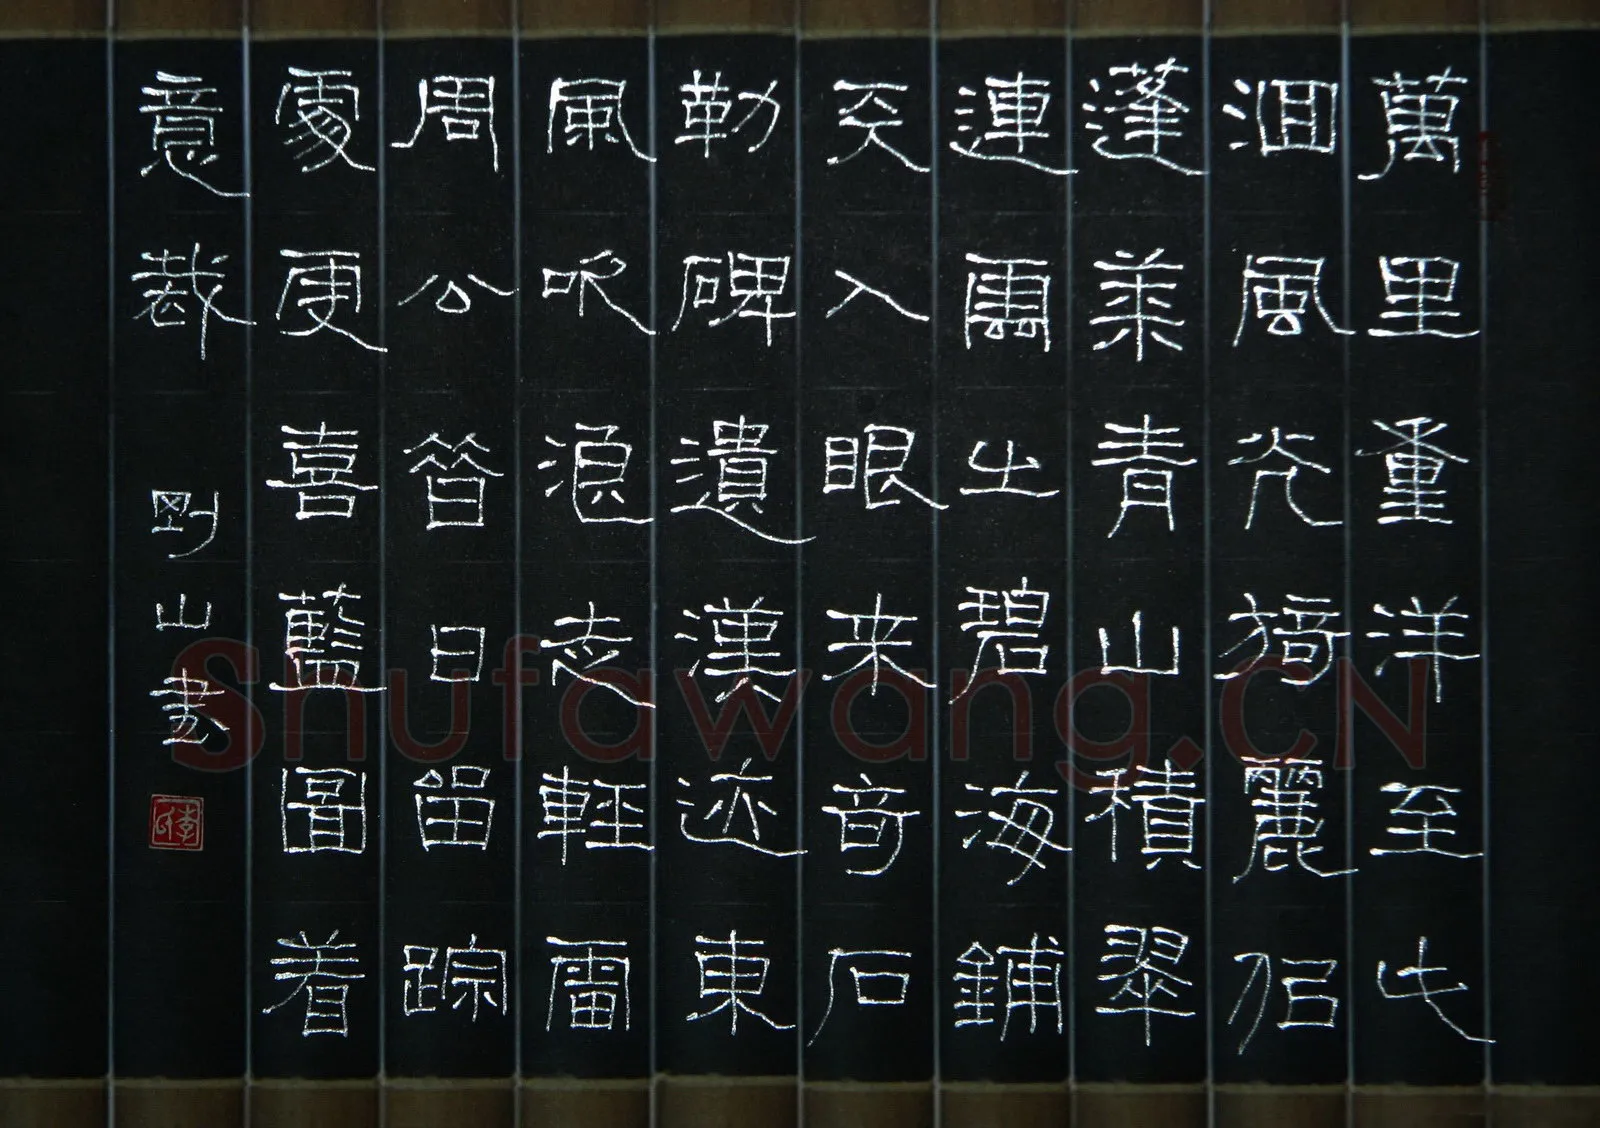 萬里重洋至此
洄風光猗麗似
蓬萊青山積翠
連雲出碧海鋪
天入眼来奇石
勒碑遺漢迹東
風吹浪走輕雷
周公昔日留踪
處更喜藍圖着
意裁
剛山書
Shufawang.CN